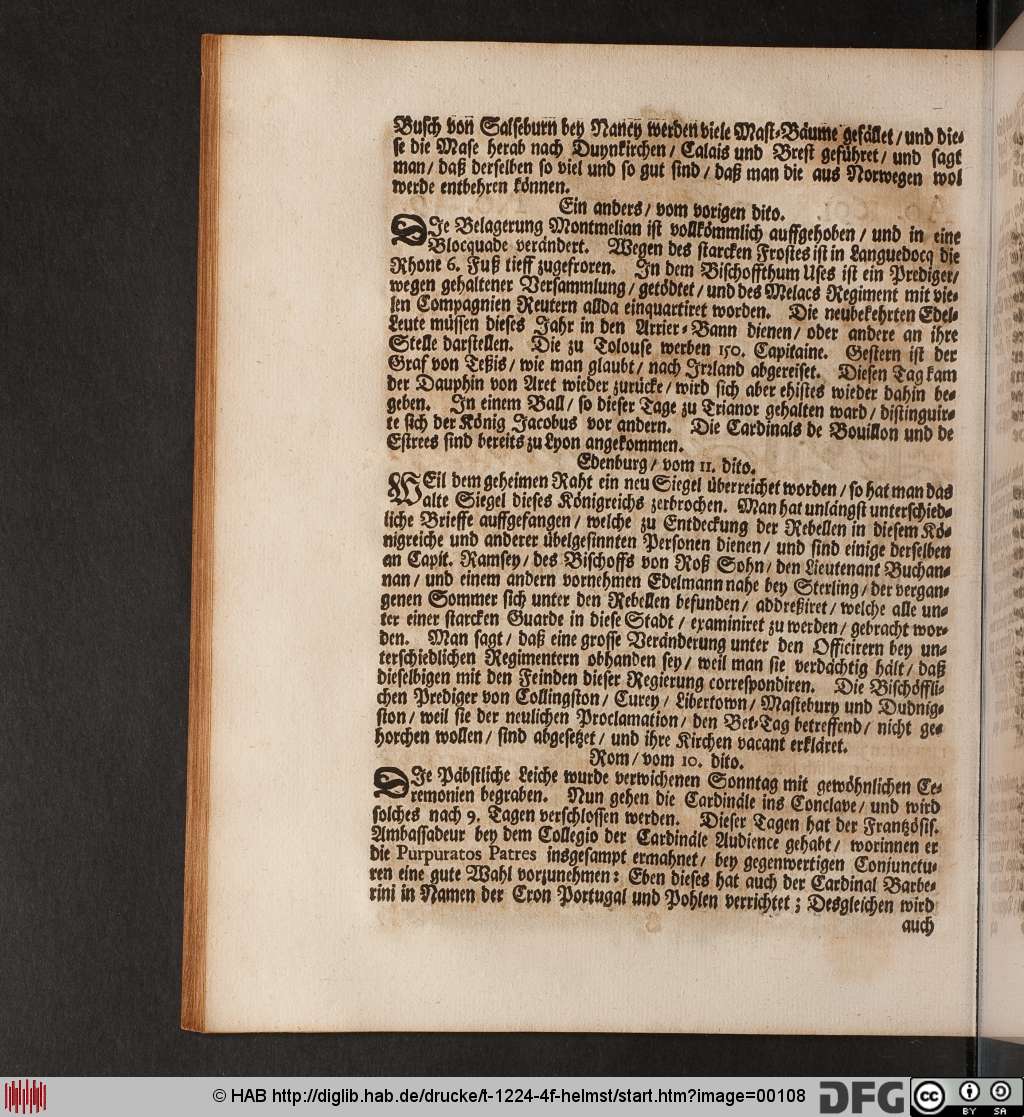 Busch von Salseburn bey Nancy werden viele Mast-Bäume gefället / und die-
se die Mase herab nach Duynkirchen / Calais und Brest geführet / und sagt
man / daß derselben so viel und so gut sind / daß man die aus Norwegen wol
werde entbehren können.
Ein anders / vom vorigen dito.
DIe Belagerung Montmelian ist vollkömmlich auffgehoben / und in eine
Blocquade verändert. Wegen des starcken Frostes ist in Languedocq die
Rhone 6. Fuß tieff zugefroren. In dem Bischoffthum Uses ist ein Prediger /
wegen gehaltener Versammlung / getödtet / und des Melacs Regiment mit vie-
len Compagnien Reutern allda einquartiret worden. Die neubekehrten Edel-
Leute müssen dieses Jahr in den Arrier-Bann dienen / oder andere an ihre
Stelle darstellen. Die zu Tolouse werben 150. Capitaine. Gestern ist der
Graf von Teßis / wie man glaubt / nach Irrland abgereiset. Diesen Tag kam
der Dauphin von Aret wieder zurücke / wird sich aber ehistes wieder dahin be-
geben. In einem Ball / so dieser Tage zu Trianor gehalten ward / distinguir-
te sich der König Jacobus vor andern. Die Cardinals de Bouillon und de
Estrees sind bereits zu Lyon angekommen.
Edenburg / vom 11. dito.
WEil dem geheimen Raht ein neu Siegel überreichet worden / so hat man das
alte Siegel dieses Königreichs zerbrochen. Man hat unlängst unterschied-
liche Brieffe auffgefangen / welche zu Entdeckung der Rebellen in diesem Kö-
nigreiche und anderer übelgesinnten Personen dienen / und sind einige derselben
an Capit. Ramsey / des Bischoffs von Roß Sohn / den Lieutenant Buchan-
nan / und einem andern vornehmen Edelmann nahe bey Sterling / der vergan-
genen Sommer sich unter den Rebellen befunden / addreßiret / welche alle un-
ter einer starcken Guarde in diese Stadt / examiniret zu werden / gebracht wor-
den. Man sagt / daß eine grosse Veränderung unter den Officirern bey un-
terschiedlichen Regimentern obhanden sey / weil man sie verdächtig hält / daß
dieselbigen mit den Feinden dieser Regierung correspondiren. Die Bischöffli-
chen Prediger von Collingston / Curey / Libertown / Mastebury und Dudnig-
ston / weil sie der neulichen Proclamation / den Bet-Tag betreffend / nicht ge-
horchen wollen / sind abgesetzet / und ihre Kirchen vacant erkläret.
Rom / vom 10. dito.
DIe Päbstliche Leiche wurde verwichenen Sonntag mit gewöhnlichen Ce-
remonien begraben. Nun gehen die Cardinäle ins Conclave / und wird
solches nach 9. Tagen verschlossen werden. Dieser Tagen hat der Frantzösis.
Ambassadeur bey dem Collegio der Cardinäle Audience gehabt / worinnen er
die Purpuratos Patres insgesampt ermahnet / bey gegenwertigen Conjunctu-
ren eine gute Wahl vorzunehmen: Eben dieses hat auch der Cardinal Barbe-
rini in Namen der Cron Portugal und Pohlen verrichtet; Desgleichen wird
auch
© HAB http://diglib.hab.de/drucke/t-1224-4f-helmst/start.htm?image=00108
DFG
cc BY SA